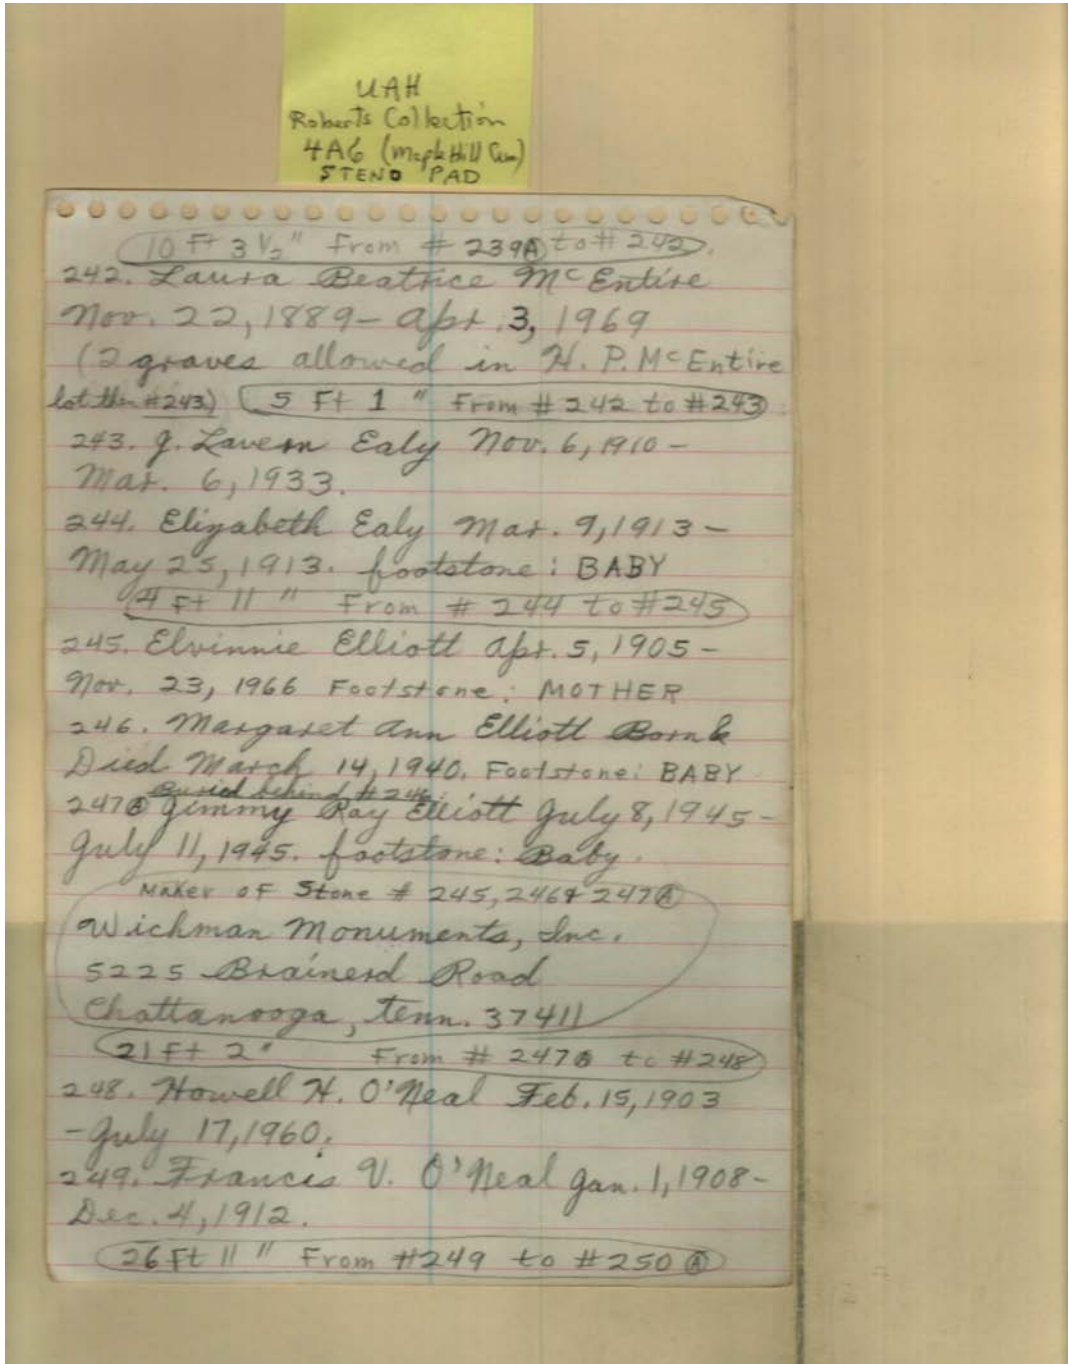 UAH
Roberts Collection
4A6 (Maple Hill Cem)
STENO PAD
10 Ft 3 ½" From # 239Ⓐ to # 242.
242. Laura Beatrice McEntire
Nov. 22, 1889 - Apr. 3, 1969
(2 graves allowed in H. P. McEntire
lot then #243.) 5 Ft 1 " From # 242 to #243
243. J. Lavern Ealy Nov. 6, 1910 -
Mar. 6, 1933.
244. Elizabeth Ealy Mar. 9, 1913 -
May 25, 1913. footstone: BABY
4 Ft 11 " From # 244 to #245
245. Elvinnie Elliott Apr. 5, 1905 -
Nov. 23, 1966 Footstone: MOTHER
246. Margaret Ann Elliott Born &
Died March 14, 1940. Footstone: BABY
Buried behind #246.
247Ⓐ Jimmy Ray Elliott July 8, 1945 -
July 11, 1945. footstone: Baby.
Maker of Stone # 245, 246 & 247Ⓐ
Wichman Monuments, Inc.
5225 Brainerd Road
Chattanooga, Tenn. 37411
21 Ft 2" From # 247Ⓐ to #248
248. Howell H. O'Neal Feb. 15, 1903
- July 17, 1960.
249. Francis V. O'Neal Jan. 1, 1908 -
Dec. 4, 1912.
26 Ft 11 " From #249 to #250 Ⓐ